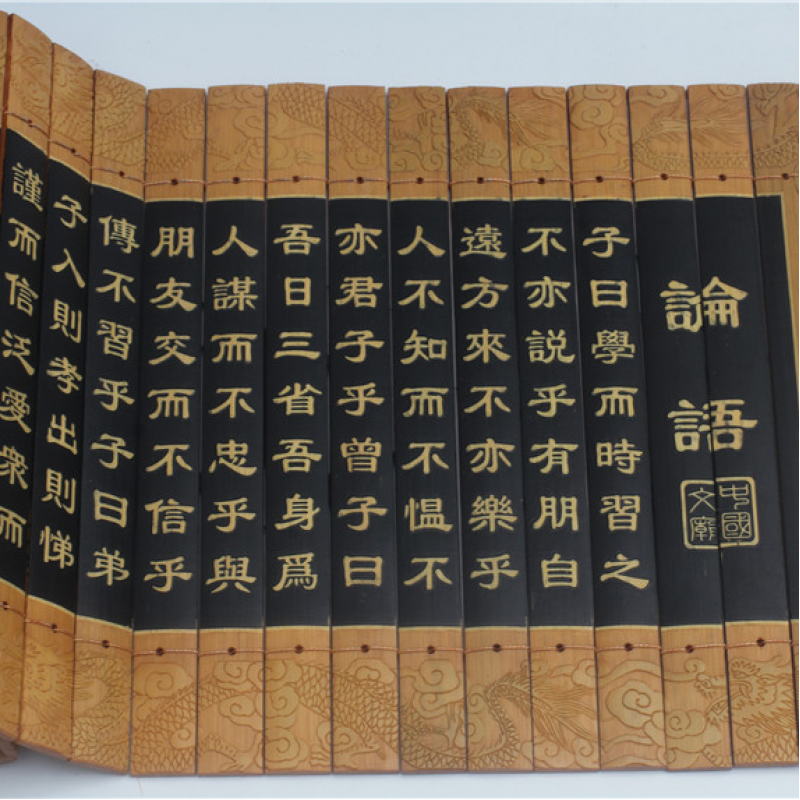 論語
中國
文廟
子曰學而時習之
不亦説乎有朋自
遠方來不亦樂乎
人不知而不愠不
亦君子乎曾子曰
吾日三省吾身爲
人謀而不忠乎與
朋友交而不信乎
傳不習乎子曰弟
子入則孝出則悌
謹而信泛愛衆而